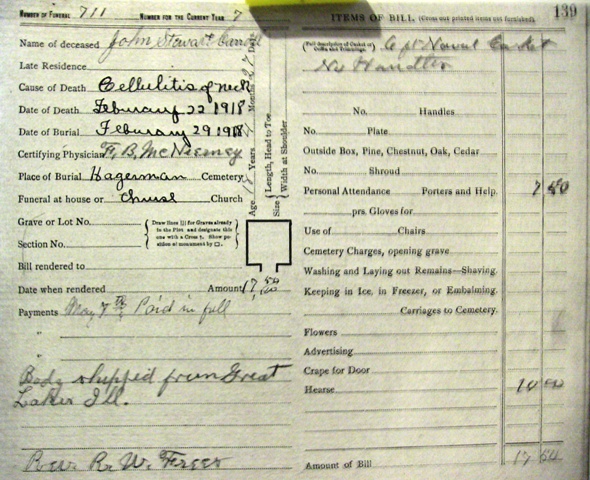 NUMBER OF FUNERAL 711 NUMBER FOR THE CURRENT YEAR 7
Name of deceased John Stewart
Late Residence
Cause of Death Cellulitis of neck
Date of Death Feburary 22 1918
Date of Burial Feburary 29 1918
Certifying Physician F. B. McNierney
Place of Burial Hagerman Cemetery
Funeral at house or Church
Grave or Lot No.
Section No.
Draw lines for Graves already in the Plot and designate this one with a Cross †. Show position of monument by □.
Bill rendered to
Date when rendered Amount 17,50
Payments May 7th Paid in full
"
"
Body shipped from Great
Lakes Ill.
Rev. R. W. Freer
Age Years Months
Size { Length, Head to Toe
Width at Shoulder
ITEMS OF BILL (Cross out printed items not furnished). 139
(Full description of Casket or Coffin and Trimmings) 6 ft Naval Casket
No Handles
No. Handles
No. Plate
Outside Box, Pine, Chestnut, Oak, Cedar
No. Shroud
Personal Attendance Porters and Help. 7 50
prs. Gloves for
Use of Chairs
Cemetery Charges, opening grave
Washing and Laying out Remains—Shaving.
Keeping in Ice, in Freezer, or Embalming.
Carriages to Cemetery.
Flowers
Advertising
Crape for Door
Hearse 10 00
Amount of Bill 17 50